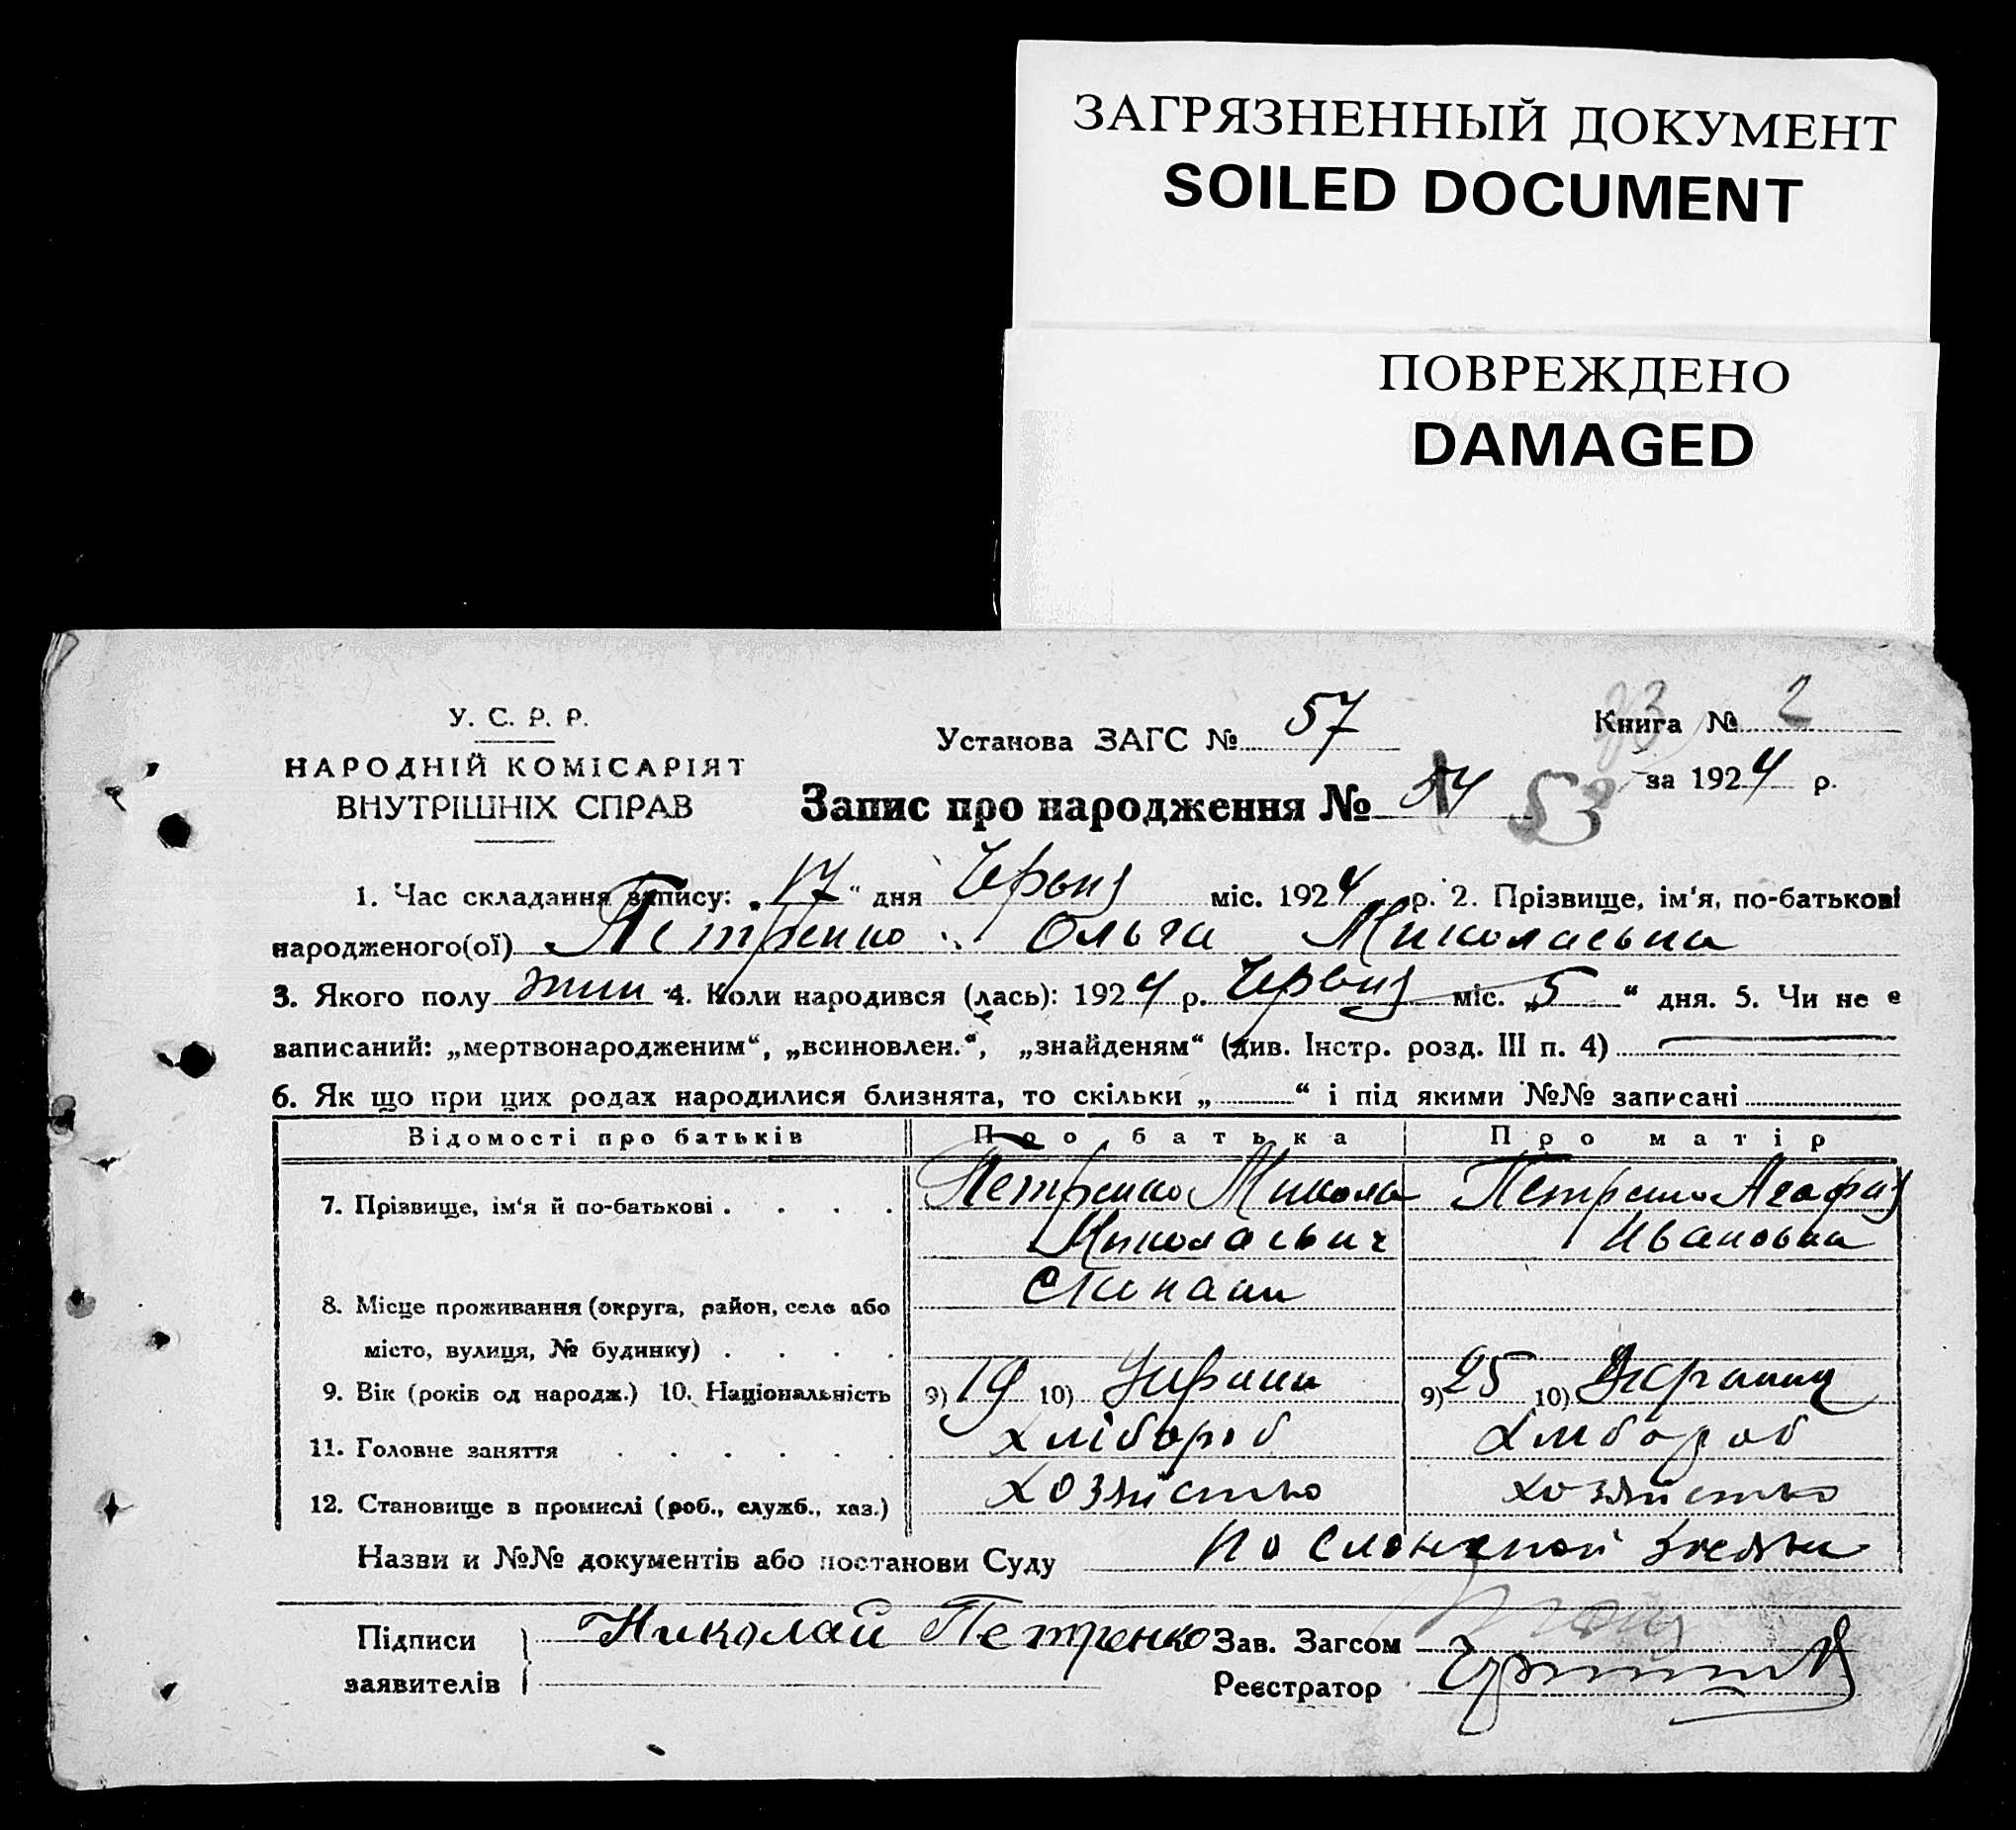 ЗАГРЯЗНЕННЫЙ ДОКУМЕНТ
SOILED DOCUMENT
ПОВРЕЖДЕНО
DAMAGED
У. С. Р. Р.
НАРОДНІЙ КОМІСАРІЯТ
ВНУТРІШНІХ СПРАВ
Установа ЗАГС № 57
Книга № 2
за 1924 р.
Запис про народження № 53
1. Час складання запису: „17“ дня Червня міс. 1924 р. 2. Прізвище, ім'я, по-батькові
народженого(ої) Петренко Ольга Миколаевна
3. Якого полу жин 4. Коли народився (лась): 1924 р. Червня міс. „5“ дня. 5. Чи не є
записаний: „мертвонародженим“, „всиновлен.“, „знайденям“ (див. Інстр. розд. III п. 4)
6. Як що при цих родах народилися близнята, то скільки „ “ і під якими №№ записані
Відомості про батьків Про батька Про матір
7. Прізвище, ім'я й по-батькові Петренко Микола Петренко Агафия
Миколаевич Ивановна
8. Місце проживання (округа, район, село або
місто, вулиця, № будинку)
9. Вік (років од народж.) 10. Національність 9) 19 10) Украин 9) 25 10)
11. Головне заняття хлібороб хлибороб
12. Становище в промислі (роб., служб., хаз.) хозяйство хозяйство
Назви и №№ документів або постанови Суду по
Підписи Николай Петренко Зав. Загсом
заявителів Реєстратор